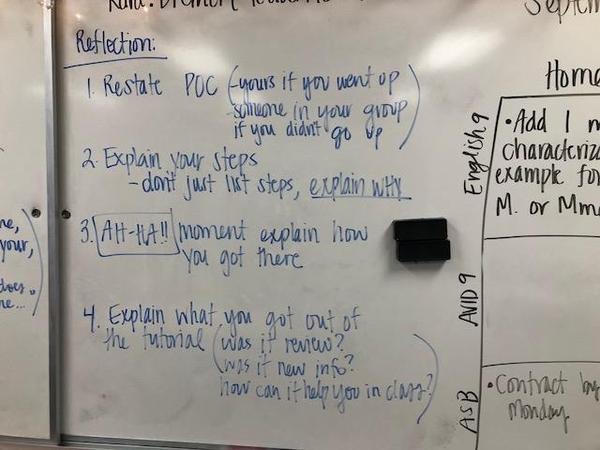 Reflection:
1. Restate POC (-yours if you went up
-someone in your group
if you didn't go up)
2. Explain your steps
- don't just list steps, explain why
3. AH-HA!! moment explain how
you got there
4. Explain what you got out of
the tutorial (was it review?
was it new info?
how can it help you in class?)
Septem
Home
English 9
• Add 1 m
characteriza
example for
M. or Mme
AVID 9
ASB
• Contract by
Monday
your,
does